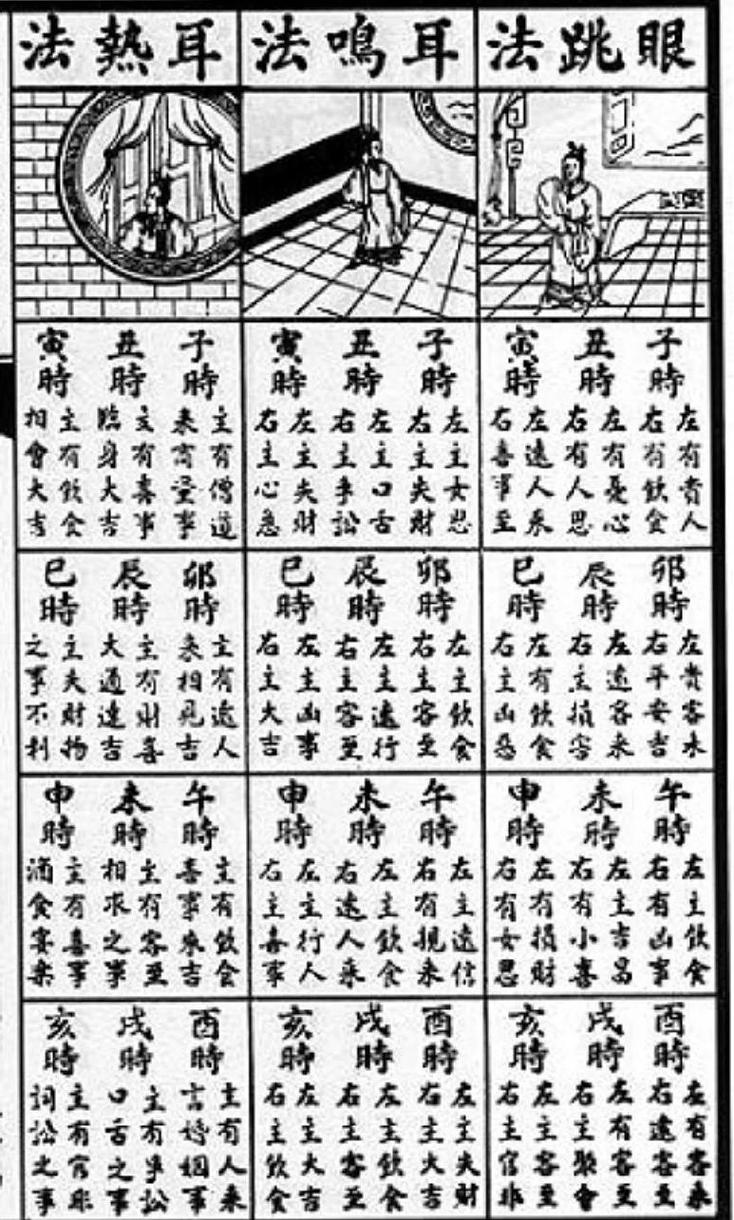 眼跳法
子時
左有貴人
右有飲食
丑時
左有憂心
右有人思
寅時
左遠人來
右喜事至
卯時
左貴客
右平安吉
辰時
左遠客來
右主損害
巳時
左有飲食
右主凶惡
午時
左主飲食
右有凶事
未時
左主吉昌
右有小喜
申時
左有損財
右有女思
酉時
左有客來
右遠客至
戌時
左有客至
右主聚會
亥時
左主客至
右主官非
耳鳴法
子時
左主女思
右主失財
丑時
左主口舌
右主爭訟
寅時
左主失財
右主心急
卯時
左主飲食
右主客至
辰時
左主遠行
右主客至
巳時
左主凶事
右主大吉
午時
左主遠信
右有親來
未時
左主飲食
右遠人來
申時
左主行人
右主喜事
酉時
左主失財
右主大吉
戌時
左主飲食
右主客至
亥時
左主大吉
右主飲食
耳熱法
子時
主有僧道
來事
丑時
主有喜事
臨身大吉
寅時
主有飲食
相會大吉
卯時
主有遠人
來相見吉
辰時
主有財喜
大通達吉
巳時
主失財物
之事不利
午時
主有飲食
喜事來吉
未時
主有客至
相求之事
申時
主有喜事
酒食宴樂
酉時
主有人來
言婚姻事
戌時
主有爭訟
口舌之事
亥時
主有官非
詞訟之事